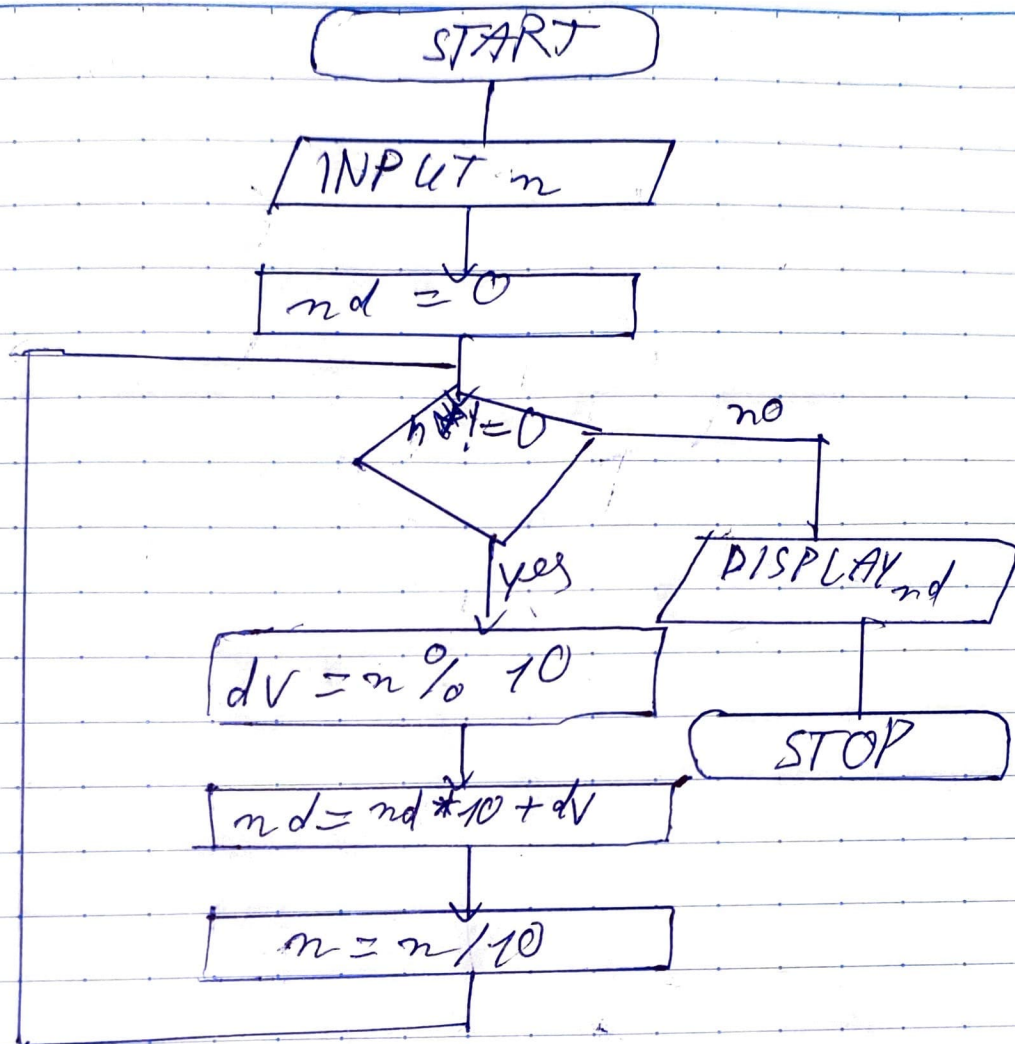 START
INPUT n
nd = 0
n != 0
no
yes
DISPLAY nd
dv = n % 10
STOP
nd = nd * 10 + dv
n = n / 10